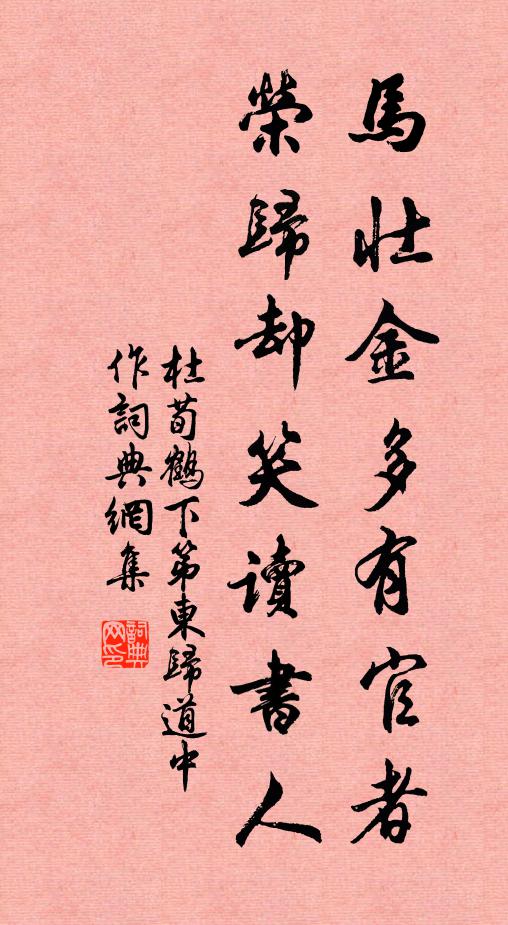 馬壯金多有官者
榮歸却笑讀書人
杜荀鶴下第東歸道中
作詞典網集
詞典网印